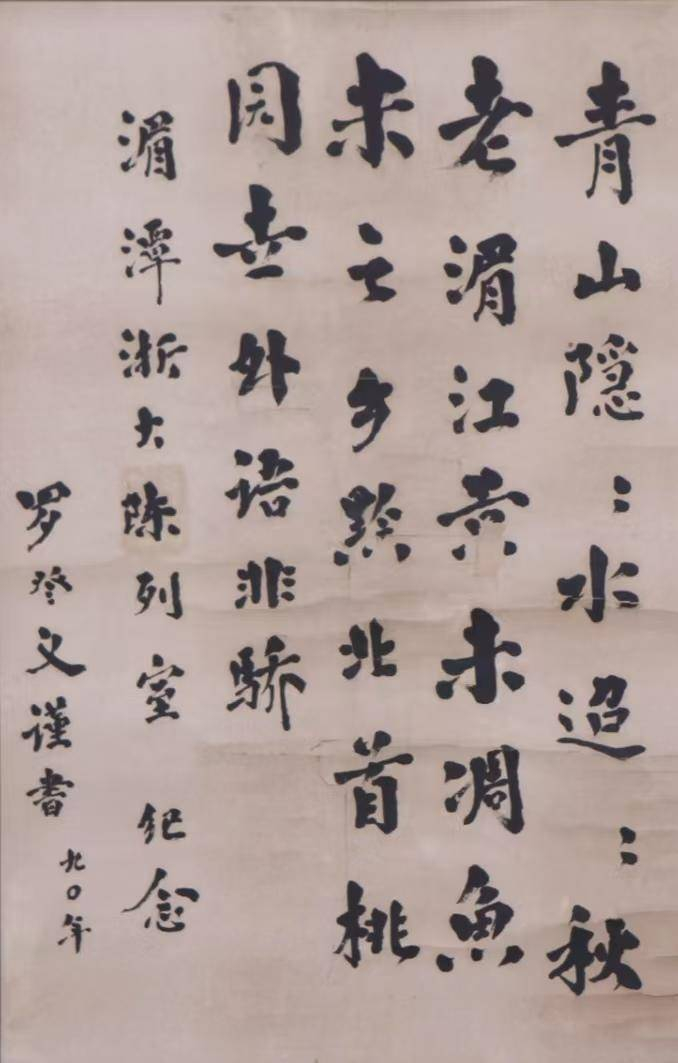 青山隐：水迢：秋
老湄江未凋鱼
米之乡黔北首桃
园世外语非骄
湄潭浙大陈列室 纪念
罗登义谨书
九〇年